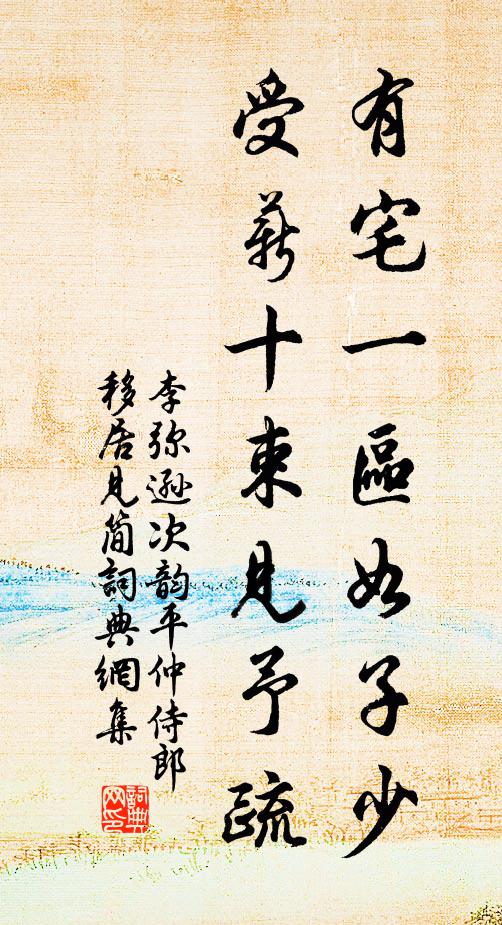 有宅一區如子少
受薪十束見予疏
李弥遜次韵平仲侍郎
移居見简詞典網集
詞典
网印